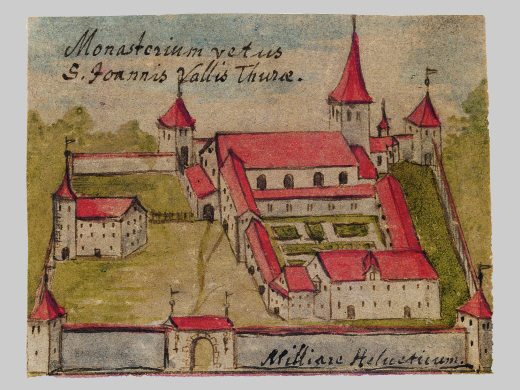 Monasterium vetus
S. Joannis Vallis Thuræ.
Milliare Helueticum.